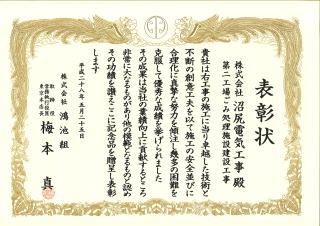 表彰状
株式会社 沼尻電気工事 殿
第二工場ごみ処理施設建設工事
貴社は右工事の施工に当り卓越した技術と
不断の創意工夫を以て施工の安全並びに
合理化に真摯な努力を傾注し幾多の困難を
克服して優秀な成績を挙げられました
その成果は当社の業績向上に貢献するところ
非常に大なるものがあり他の模範となるものと認め
その功績を讃えここに記念品を贈呈し表彰
します
平成二十八年五月二十五日
株式会社 鴻池組
取締役
常務執行役員
東京本店長
梅本 真